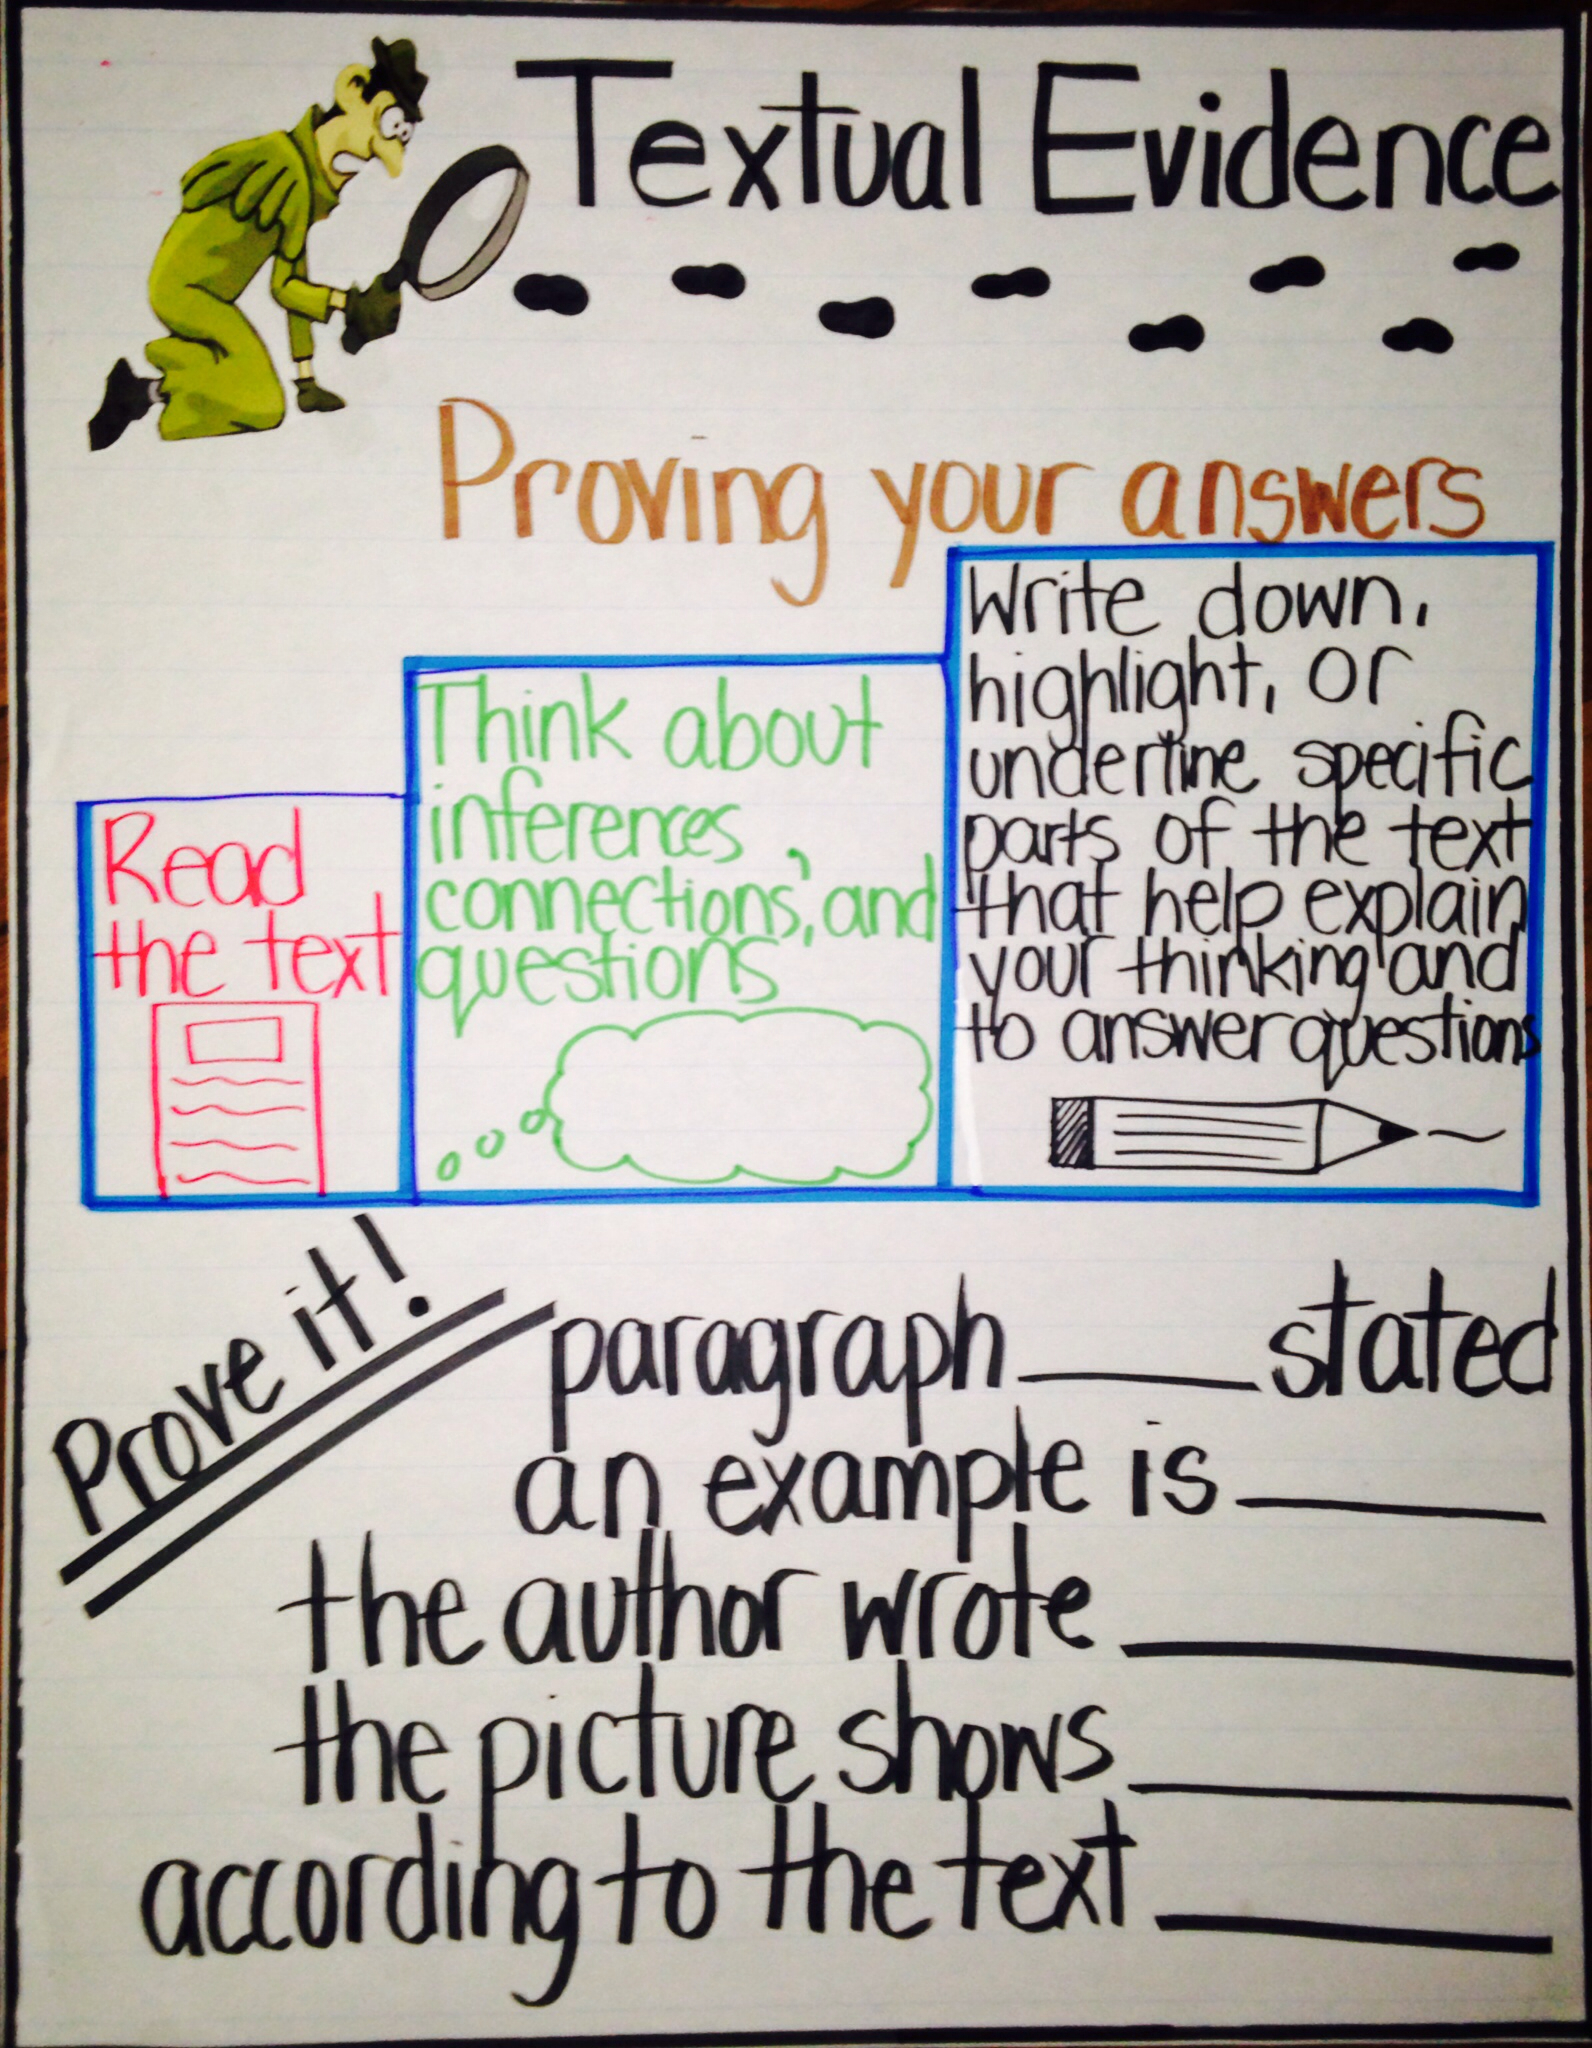 Textual Evidence
Proving your answers
Read
the text
Think about
inferences,
connections, and
questions
Write down,
highlight, or
underline specific
parts of the text
that help explain
your thinking and
to answer questions
Prove it!
paragraph ____ stated
an example is ____
the author wrote ____
the picture shows ____
according to the text ____